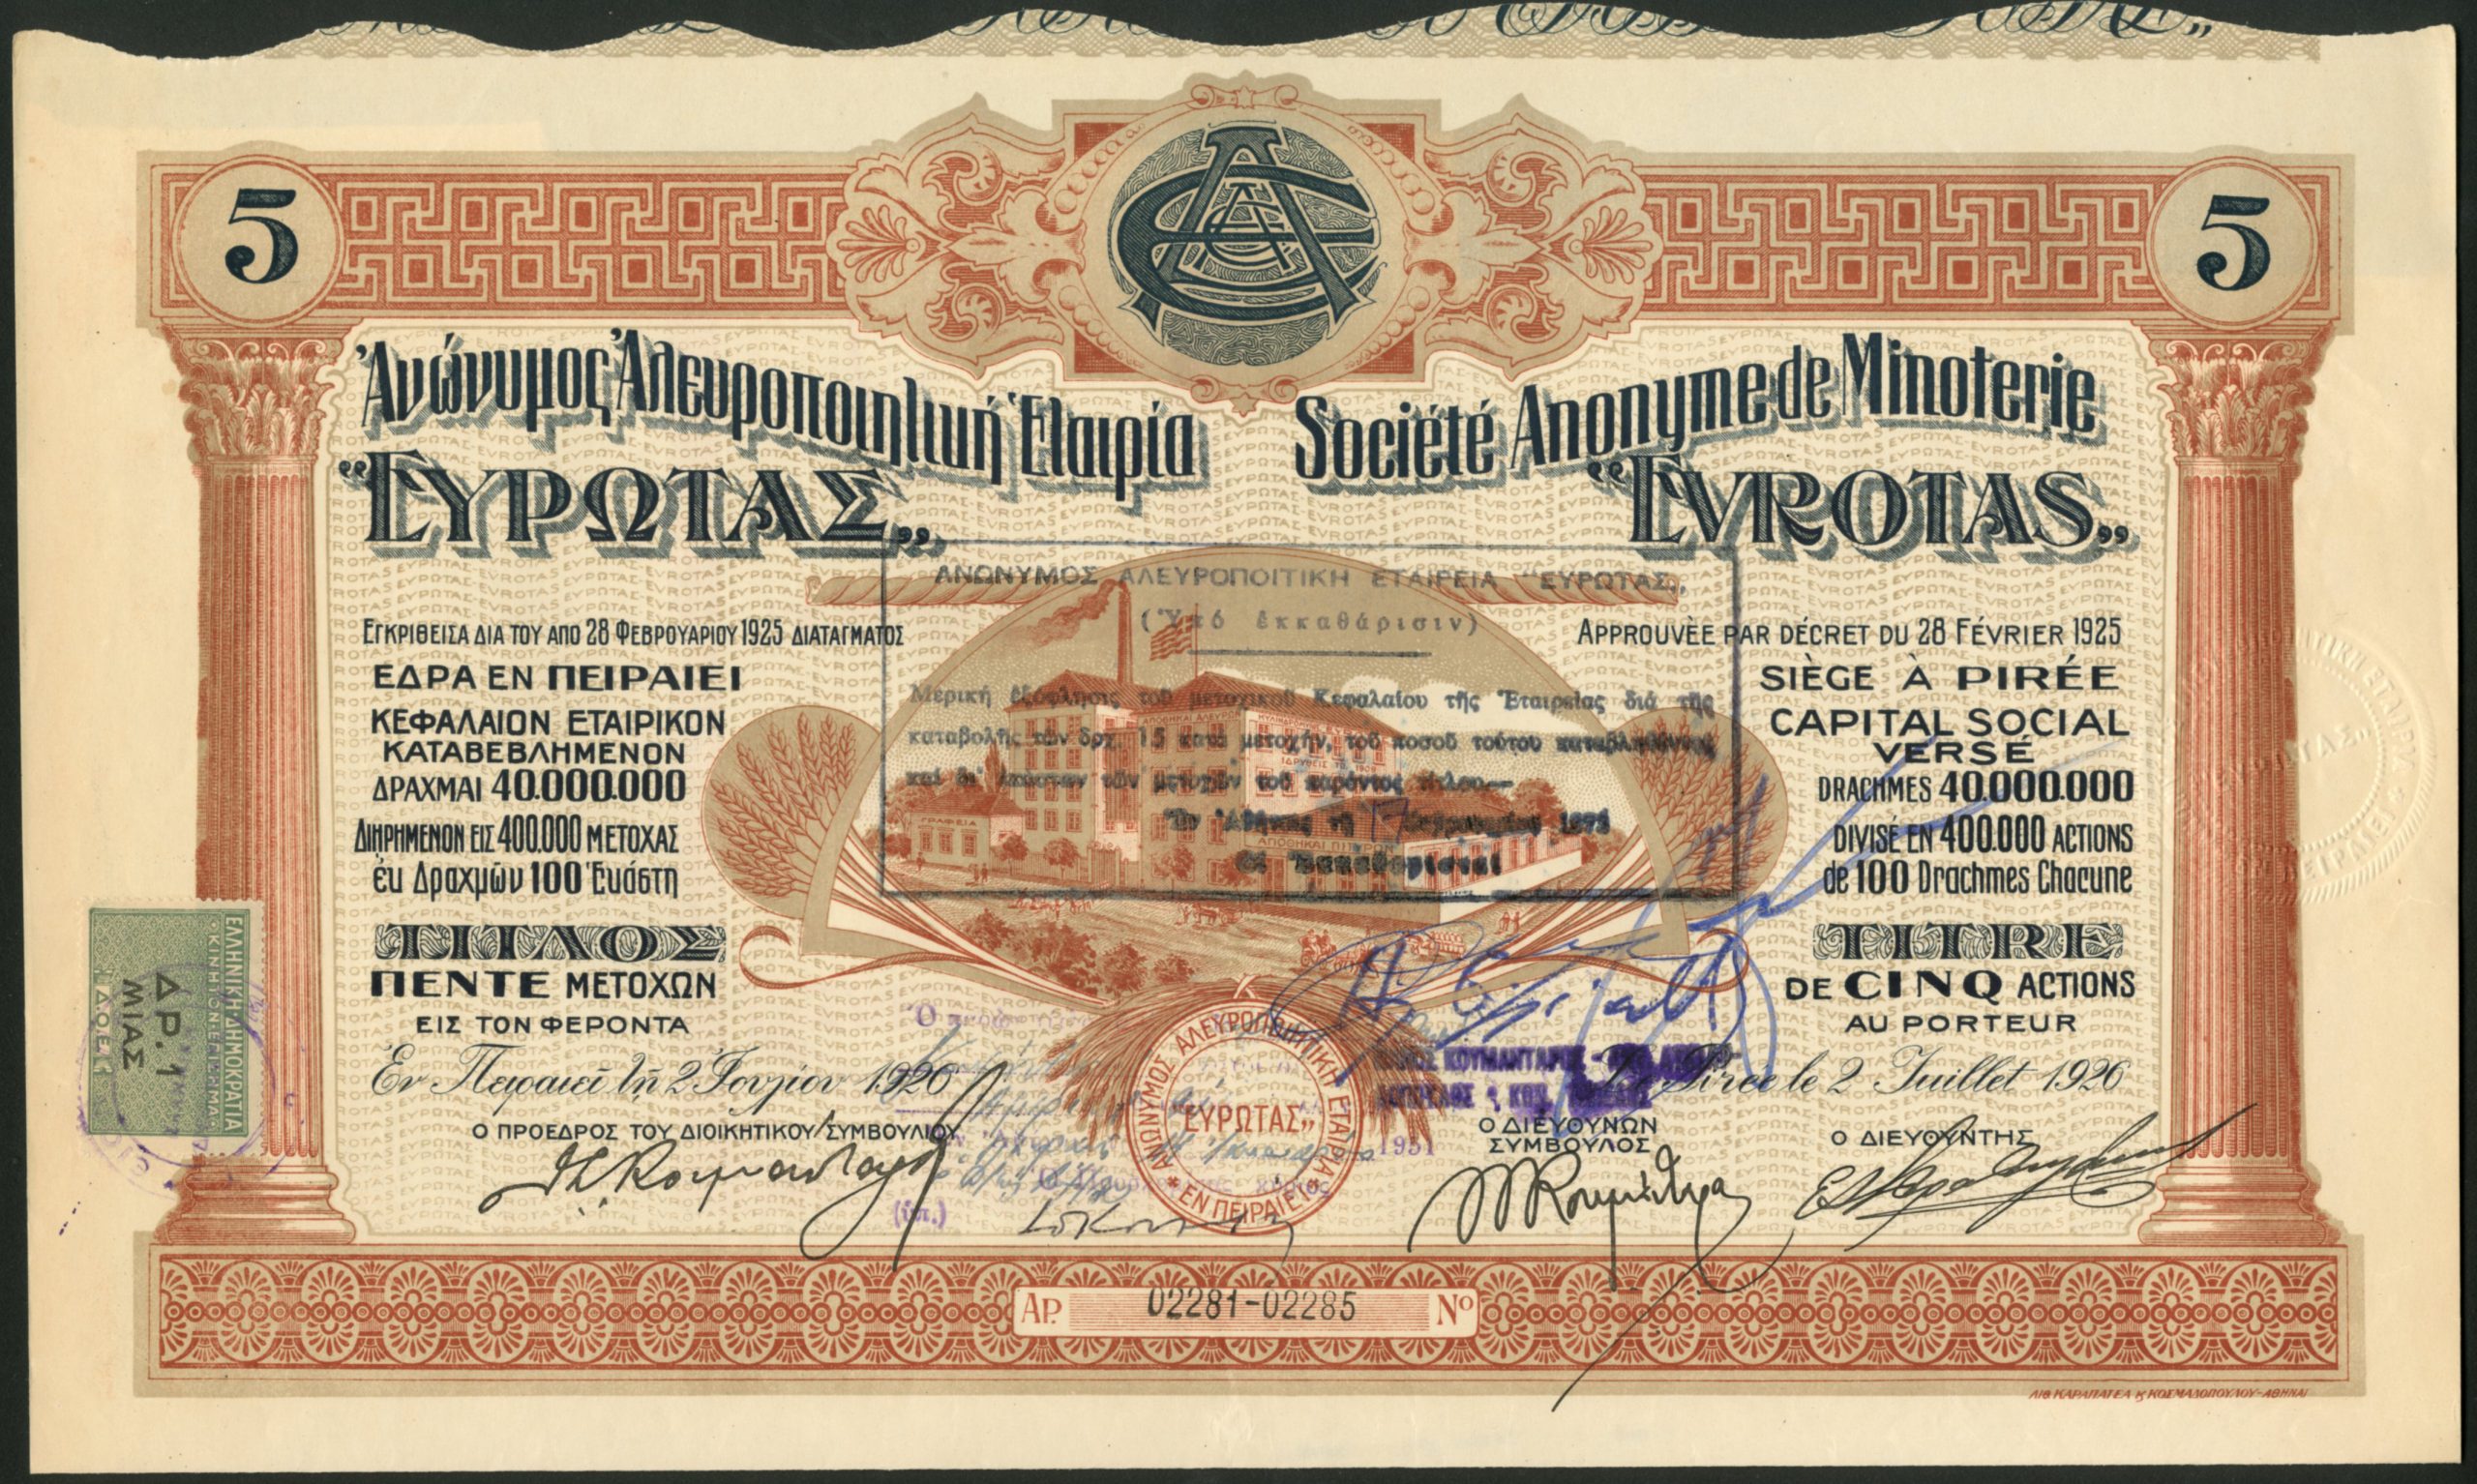 5
5
Ἀνώνυμος Ἀλευροποιητική Ἑταιρία
"ΕΥΡΩΤΑΣ"
ΕΓΚΡΙΘΕΙΣΑ ΔΙΑ ΤΟΥ ΑΠΟ 28 ΦΕΒΡΟΥΑΡΙΟΥ 1925 ΔΙΑΤΑΓΜΑΤΟΣ
ΕΔΡΑ ΕΝ ΠΕΙΡΑΙΕΙ
ΚΕΦΑΛΑΙΟΝ ΕΤΑΙΡΙΚΟΝ
ΚΑΤΑΒΕΒΛΗΜΕΝΟΝ
ΔΡΑΧΜΑΙ 40.000.000
ΔΙΗΡΗΜΕΝΟΝ ΕΙΣ 400.000 ΜΕΤΟΧΑΣ
ἐκ Δραχμῶν 100 Ἑκάστη
ΤΙΤΛΟΣ
ΠΕΝΤΕ ΜΕΤΟΧΩΝ
ΕΙΣ ΤΟΝ ΦΕΡΟΝΤΑ
Ἐν Πειραιεῖ τῇ 2 Ἰουλίου 1926
Ο ΠΡΟΕΔΡΟΣ ΤΟΥ ΔΙΟΙΚΗΤΙΚΟΥ ΣΥΜΒΟΥΛΙΟΥ
Société Anonyme de Minoterie
"EVROTAS"
APPROUVÈE PAR DÉCRET DU 28 FÉVRIER 1925
SIÈGE À PIRÉE
CAPITAL SOCIAL
VERSÉ
DRACHMES 40.000.000
DIVISÉ EN 400.000 ACTIONS
de 100 Drachmes Chacune
TITRE
DE CINQ ACTIONS
AU PORTEUR
Le Pirée le 2 Juillet 1926
Ο ΔΙΕΥΘΥΝΩΝ
ΣΥΜΒΟΥΛΟΣ
Ο ΔΙΕΥΘΥΝΤΗΣ
ΑΝΩΝΥΜΟΣ ΑΛΕΥΡΟΠΟΙΤΙΚΗ ΕΤΑΙΡΕΙΑ "ΕΥΡΩΤΑΣ"
(Ὑπό ἐκκαθάρισιν)
Μερική ἐξόφλησις τοῦ μετοχικοῦ Κεφαλαίου τῆς Ἑταιρείας διά τῆς
καταβολῆς τῶν δρχ. 15 κατά μετοχήν, τοῦ ποσοῦ τούτου
καί δι' τῶν μετοχῶν τοῦ παρόντος
Ἐν Ἀθήναις τῇ 17
Οἱ Ἐκκαθαρισταί
ΓΡΑΦΕΙΑ
ΑΠΟΘΗΚΑΙ ΑΛΕΥΡΩΝ
ΑΠΟΘΗΚΑΙ ΠΙΤΥΡΩΝ
ΑΝΩΝΥΜΟΣ ΑΛΕΥΡΟΠΟΙΗΤΙΚΗ ΕΤΑΙΡΙΑ
"ΕΥΡΩΤΑΣ"
ΕΝ ΠΕΙΡΑΙΕΙ
1951
ΕΛΛΗΝΙΚΗ ΔΗΜΟΚΡΑΤΙΑ
ΚΙΝΗΤΟΝ ΕΠΙΣΗΜΑ
ΔΡ. 1
ΜΙΑΣ
ΑΡ. 02281-02285 Nº
ΛΙΘ. ΚΑΡΑΠΑΤΕΑ & ΚΟΣΜΑΔΟΠΟΥΛΟΥ-ΑΘΗΝΑΙ